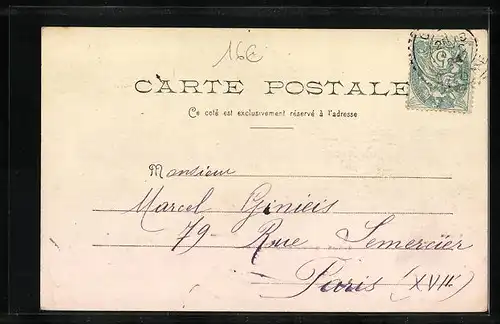 16€
CARTE POSTALE
Ce coté est exclusivement réservé à l'adresse
Monsieur
Marcel Ginieis
79 - Rue Lemercier
Paris (XVII)